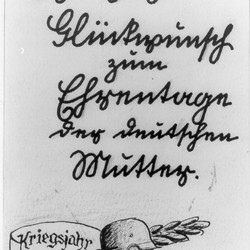 Glückwunsch
zum
Ehrentage
der deutschen
Mutter.
Kriegsjahr